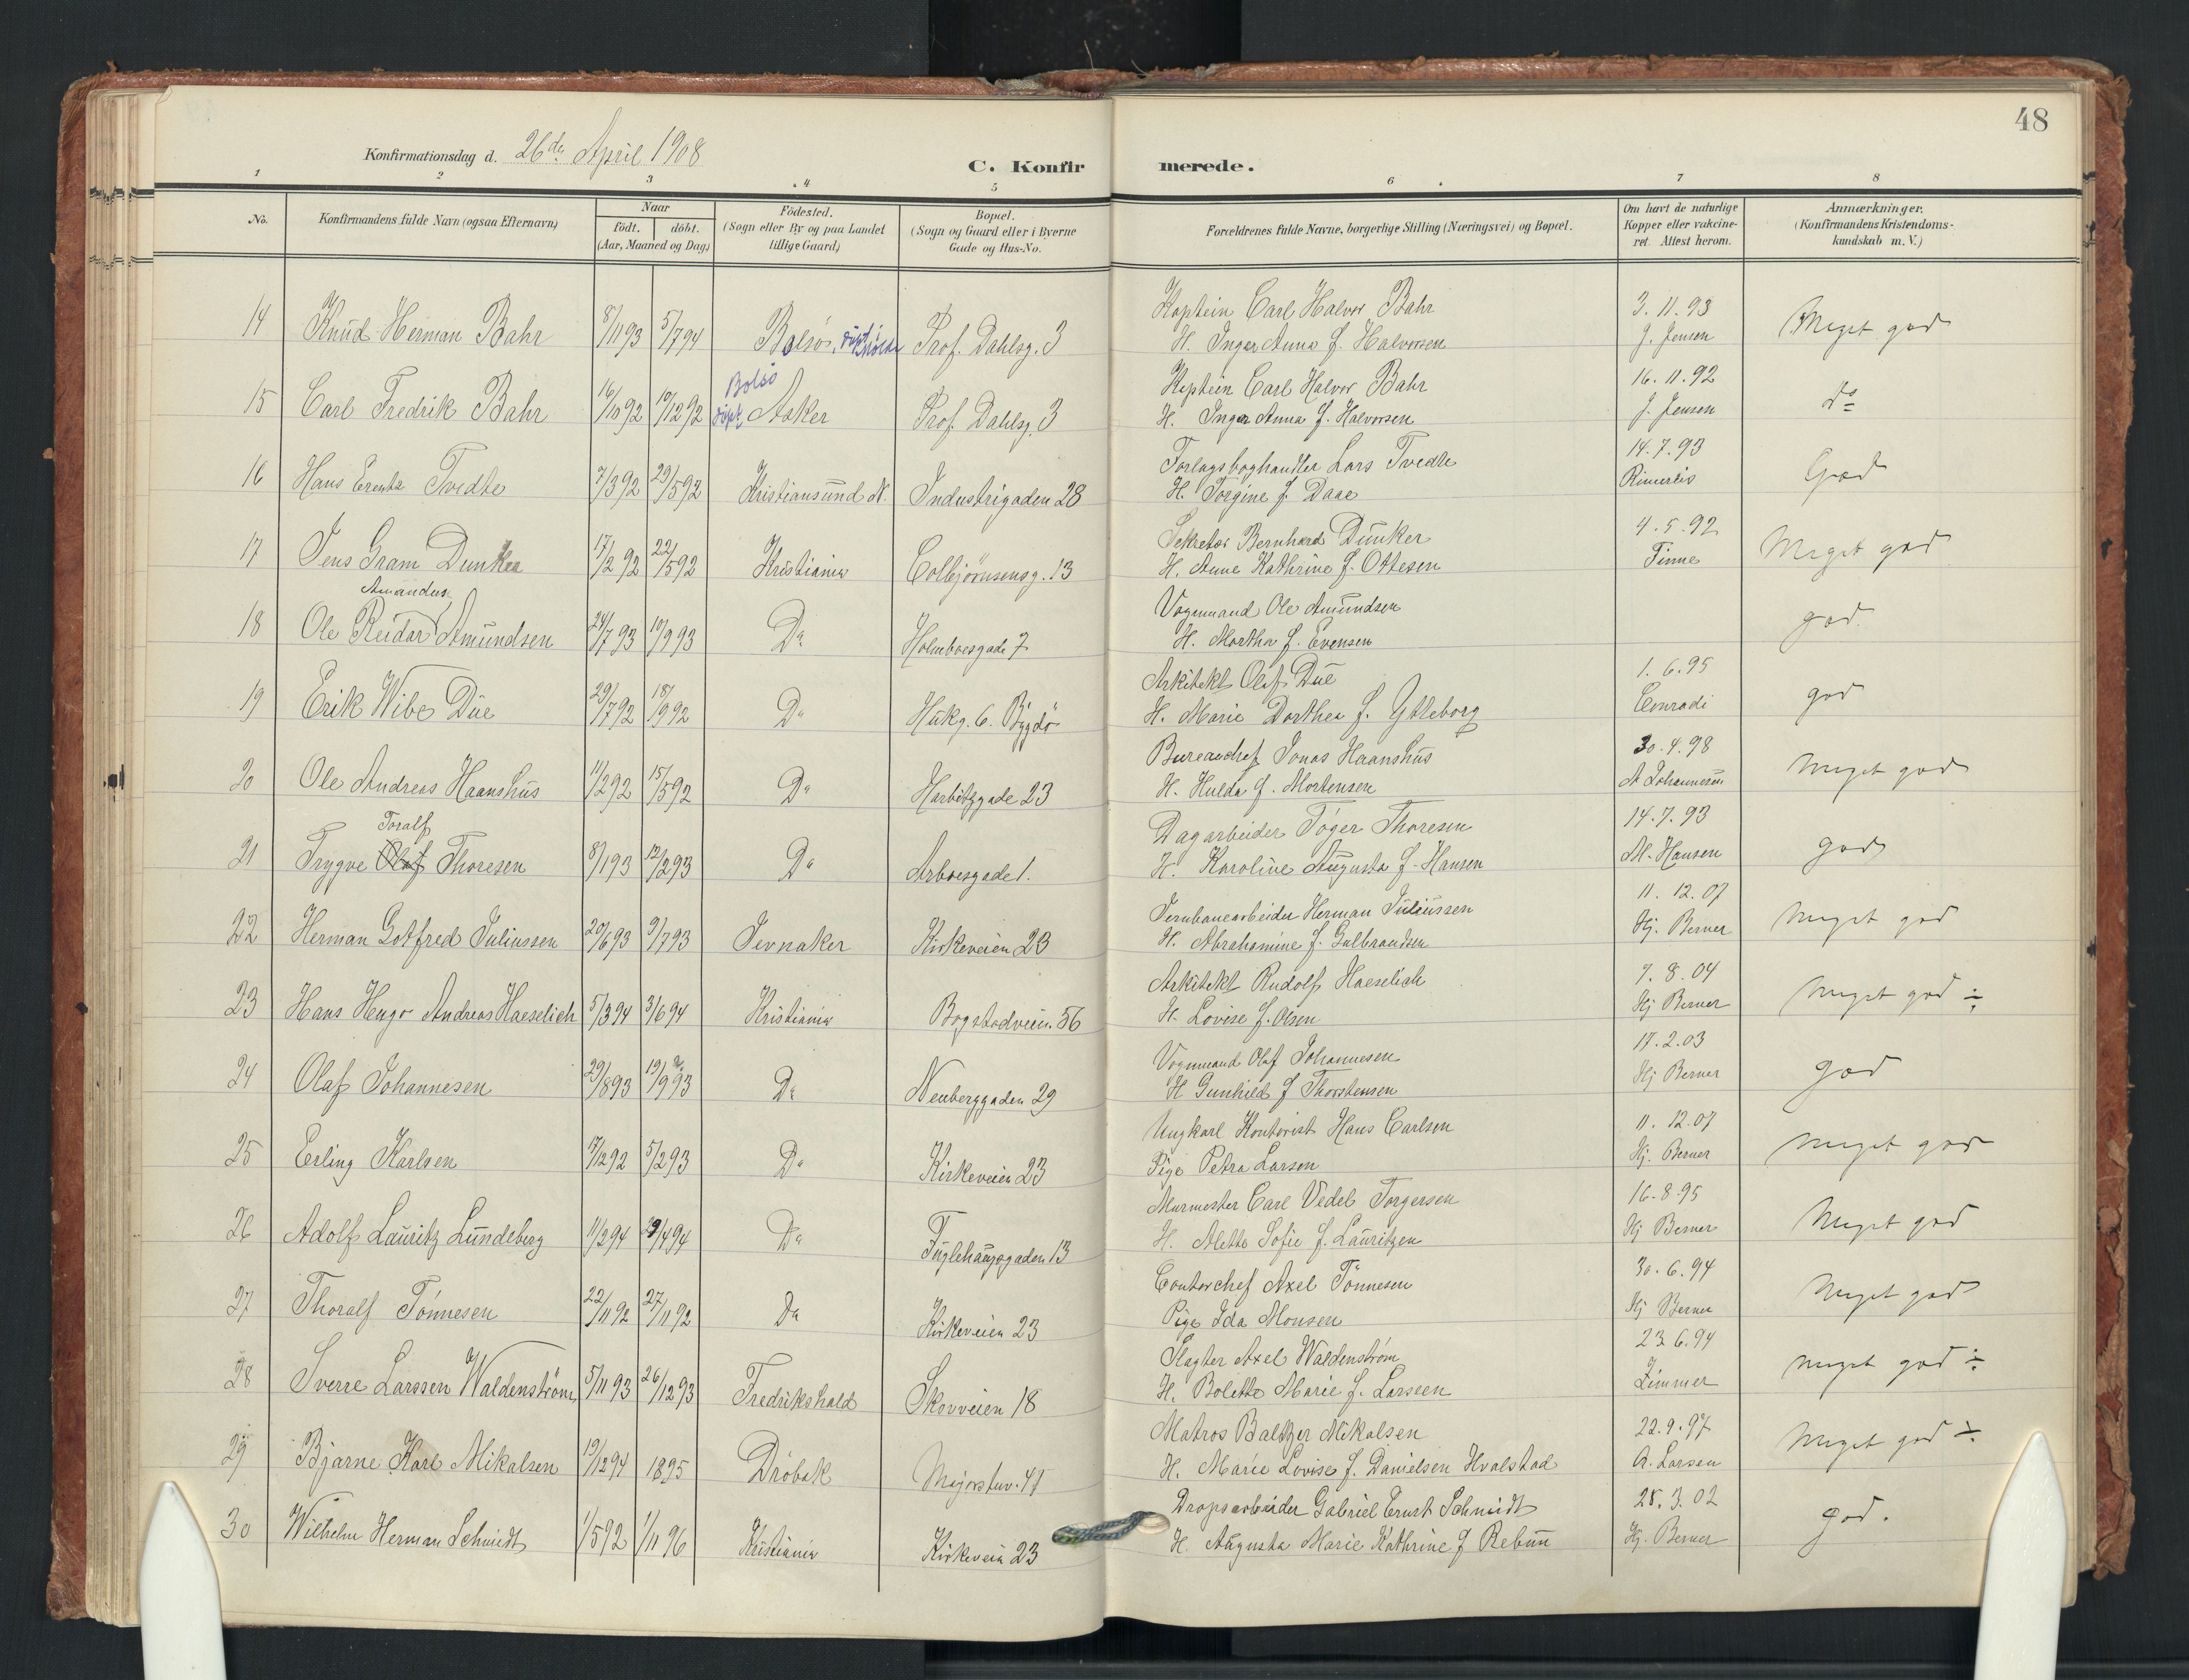 48
Konfirmationsdag d. 26de April 1908
C. Konfirmerede.
1 2 3 4 5 6 7 8
No. Konfirmandens fulde Navn (ogsaa Efternavn) Naar født. døbt. (Aar, Maaned og Dag) Födested. (Sogn eller By og paa Landet tillige Gaard) Bopæl. (Sogn og Gaard eller i Byerne Gade og Hus-No. Forældrenes fulde Navne, borgerlige Stilling (Næringsvei) og Bopæl. Om havt de naturlige Kopper eller vakcineret. Attest herom. Anmærkninger. (Konfirmandens Kristendomskundskab m. V.)
14 Knud Herman Bahr 8/11 93 5/7 94 Bolsö, Prof. Dahlsg. 3 Kaptein Carl Halvor Bahr 3.11.93
H. Inger Anna f. Halvorsen J. Jensen Meget god
15 Carl Fredrik Bahr 16/10 92 19/12 92 Bolsö döpt Asker Prof. Dahlsg. 3 Kaptein Carl Halvor Bahr 16.11.92
H. Inger Anna f. Halvorsen J. Jensen do
16 Hans Tvedte 7/3 92 29/5 92 Kristiansund N. Industrigaden 28 Forlagsboghandler Lars Tvedte 14.7.93
H. Torgine f. Daae God
17 Jens Gram Dunker 17/2 92 22/5 92 Kristiania Colbjörnsensg. 13 Sekretær Bernhard Dunker 4.5.92
H. Anne Kathrine f. Ottesen Finne Meget god
Amandus
18 Ole Reidar Amundsen 24/7 93 10/9 93 Do Holmboesgade 7 Vognmand Ole Amundsen
H. Martha f. Evensen god.
19 Erik Wibe Due 29/7 92 18/9 92 Do Hukg. 6. Bygdö Arkitekt Olaf Due 1.6.95
H. Marie Dorthea f. Ytteborg Conradi god
20 Ole Andreas Haanshus 11/2 92 15/5 92 Do Harbitzgade 23 Bureauchef Jonas Haanshus 30.4.98
H. Hulda f. Mortensen A Johannesen Meget god
Toralf
21 Trygve Olaf Thoresen 8/1 93 12/2 93 Do Arboesgade 1. Dagarbeider Töger Thoresen 14.7.93
H. Karoline Augusta f. Hansen M. Hansen god
22 Herman Gotfred Juliussen 20/6 93 9/7 93 Jevnaker Kirkeveien 23 Jernbanearbeider Herman Juliussen 11.12.07
H. Abrahamine f. Gulbrandsen Hj. Berner Meget god
23 Hans Hugo Andreas Haeselich 5/3 94 3/6 94 Kristiania Bogstadveien 56 Arkitekt Rudolf Haeselich 7.8.04
H. Lovise f. Olsen Hj Berner Meget god ÷
24 Olaf Johannesen 29/8 93 19/9 93 Do Neuberggaden 29 Vognmand Olaf Johannesen 17.2.03
H Gunhild f Thorstensen Hj Berner god
25 Erling Karlsen 17/12 92 5/2 93 Do Kirkeveien 23 Ungkarl Kontorist Hans Carlsen 11.12.07
Pige Petra Larsen Hj. Berner Meget god
26 Adolf Lauritz Lundeberg 11/2 94 29/4 94 Do Fuglehaugsgaden 13 Murmester Carl Vedel Torgersen 16-8-95
H. Alette Sofie f. Lauritzen Hj Berner Meget god
27 Thoralf Tönnesen 22/11 92 27/11 92 Do Kirkeveien 23 Contorchef Axel Tönnesen 30.6.94
Pige Ida Monsen Hj Berner Meget god
28 Sverre Larssen Waldenström 5/11 93 26/12 93 Fredrikshald Skovveien 18 Slagter Axel Waldenström 23.6.94
H. Bolette Marie f. Larssen Zimmer meget god ÷
29 Bjarne Karl Mikalsen 19/12 94 1895 Dröbak Majorstuv. 41 Matros Baltzer Mikalsen 22.9.97
H. Marie Lovise f. Danielsen Hvalstad A. Larsen Meget god ÷
30 Wilhelm Herman Schmidt 1/5 92 1/11 96 Kristiania Kirkevein 23 Dropsarbeider Gabriel Ernst Schmidt 25.3.02
H. Augusta Marie Kathrine f Rebun Hj. Berner god.